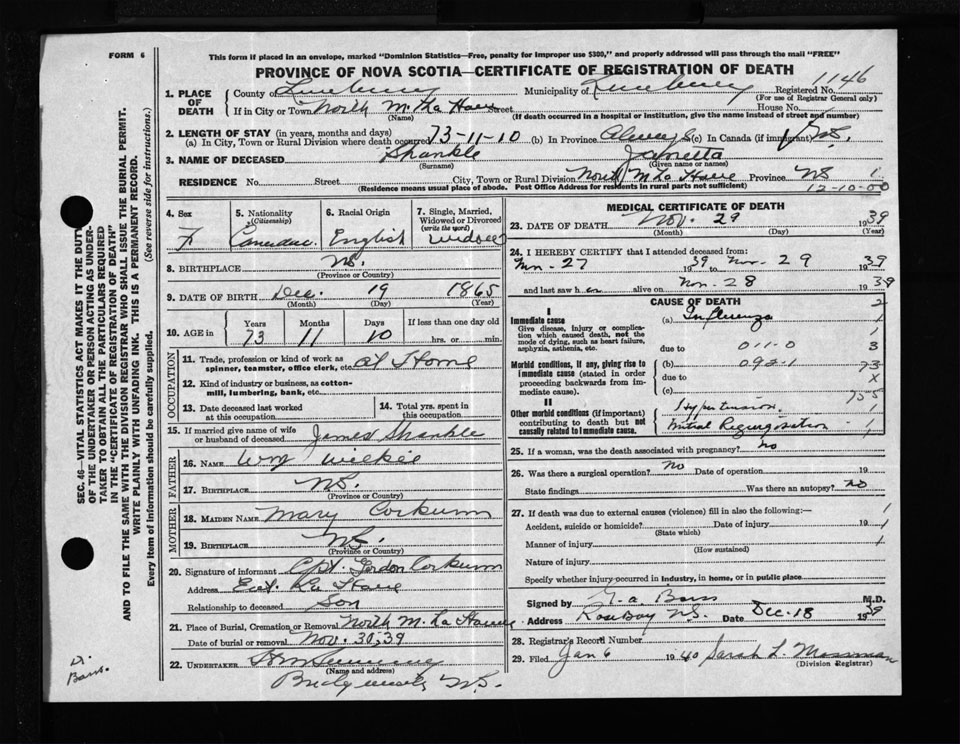 FORM 6
This form if placed in an envelope, marked "Dominion Statistics—Free, penalty for improper use $300," and properly addressed will pass through the mail "FREE"
PROVINCE OF NOVA SCOTIA—CERTIFICATE OF REGISTRATION OF DEATH
1. PLACE OF DEATH County of Lunenburg Municipality of Lunenburg Registered No. 1146
(For use of Registrar General only)
If in City or Town North M. La Have Street House No.
(Name) (If death occurred in a hospital or institution, give the name instead of street and number)
2. LENGTH OF STAY (in years, months and days)
(a) In City, Town or Rural Division where death occurred 73-11-10 (b) in Province Always (c) In Canada (if immigrant)
3. NAME OF DECEASED Shankle
(Surname) (Given name or names)
RESIDENCE No. Street City, Town or Rural Division North M La Have Province NS 1
(Residence means usual place of abode. Post Office Address for residents in rural parts not sufficient) 12-10-00
4. Sex F
5. Nationality (Citizenship) Canadian
6. Racial Origin English
7. Single, Married, Widowed or Divorced (write the word) Widow
8. BIRTHPLACE N.S.
(Province or Country)
9. DATE OF BIRTH Dec. 19 1865
(Month) (Day) (Year)
10. AGE in Years Months Days If less than one day old
73 11 10 hrs. or min.
OCCUPATION
11. Trade, profession or kind of work as spinner, teamster, office clerk, etc. At Home
12. Kind of industry or business, as cotton-mill, lumbering, bank, etc.
13. Date deceased last worked at this occupation
14. Total yrs. spent in this occupation
15. If married give name of wife or husband of deceased James Shankle
FATHER
16. NAME Wm Wilkie
17. BIRTHPLACE N.S.
(Province or Country)
MOTHER
18. MAIDEN NAME Mary Corkum
19. BIRTHPLACE N.S.
(Province or Country)
20. Signature of informant Capt. Gordon Corkum
Address East La Have
Relationship to deceased Son
21. Place of Burial, Cremation or Removal North M. La Have
Date of burial or removal Nov. 30, 39
22. UNDERTAKER
(Name and address)
Bridgewater N.S.
MEDICAL CERTIFICATE OF DEATH
23. DATE OF DEATH Nov. 29 1939
(Month) (Day) (Year)
24. I HEREBY CERTIFY that I attended deceased from:
Nov- 27 1939 to Nov- 29 1939
and last saw her alive on Nov- 28 1939
CAUSE OF DEATH 2
I
Immediate cause (a) Influenza 1
Give disease, injury or complication which caused death, not the mode of dying, such as heart failure, asphyxia, asthenia, etc. 1
due to 011-0 3
Morbid conditions, if any, giving rise to immediate cause (stated in order proceeding backwards from immediate cause). (b) 092-1 73
due to X
(c) 755
II
Other morbid conditions (if important) contributing to death but not causally related to immediate cause. Hypertension 1
Mitral Regurgitation 1
25. If a woman, was the death associated with pregnancy? no
26. Was there a surgical operation? No Date of operation 19
State findings Was there an autopsy? no
27. If death was due to external causes (violence) fill in also the following:— 1
Accident, suicide or homicide? Date of injury 19 1
(State which)
Manner of injury 1
(How sustained)
Nature of injury
Specify whether injury occurred in industry, in home, or in public place
Signed by M.D.
Address Rose Bay N.S. Date Dec-18 1939
28. Registrar's Record Number
29. Filed Jan 6 1940 Sarah L. Mossman
(Division Registrar)
SEC. 46—VITAL STATISTICS ACT MAKES IT THE DUTY
OF THE UNDERTAKER OR PERSON ACTING AS UNDER-
TAKER TO OBTAIN ALL THE PARTICULARS REQUIRED
IN THE "CERTIFICATE OF REGISTRATION OF DEATH"
AND TO FILE THE SAME WITH THE DIVISION REGISTRAR WHO SHALL ISSUE THE BURIAL PERMIT.
WRITE PLAINLY WITH UNFADING INK. THIS IS A PERMANENT RECORD.
Every item of Information should be carefully supplied. (See reverse side for instructions.)